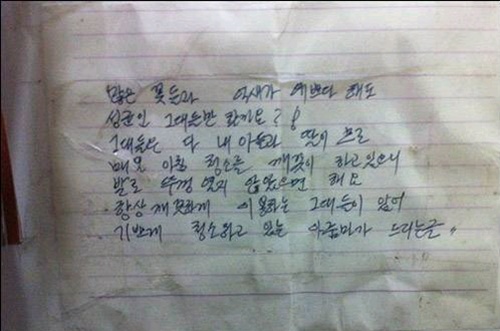 많은 꽃들과 억새가 예쁘다 해도
성균인 그대들만 할까요?!
그대들은 다 내 아들과 딸이므로
매일 아침 청소를 깨끗이 하고 있으니
발로 뚜껑 열지 않았으면 해요
항상 깨끗하게 이용하는 그대들이 있어
기쁘게 청소하고 있는 아줌마가 드리는글..